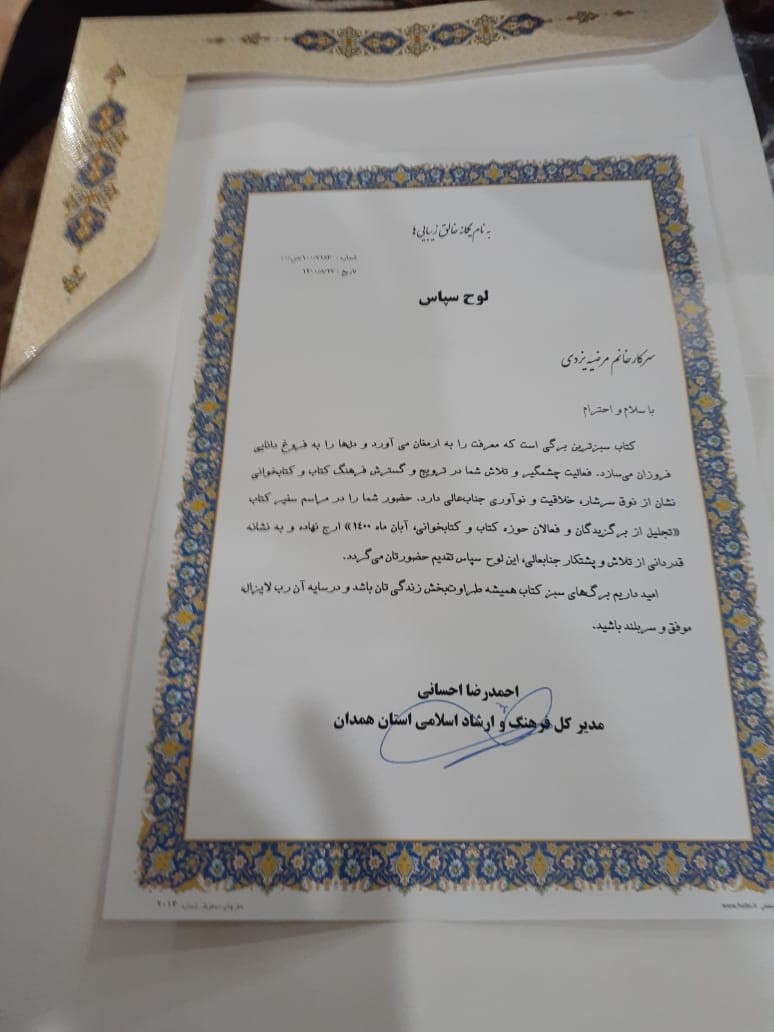 به نام یگانه خالق زیبایی‌ها
شماره :
تاریخ : ۱۴۰۰/۸/۲۷
لوح سپاس
سرکار خانم مرضیه یزدی
با سلام و احترام
کتاب سبزترین برگی است که معرفت را به ارمغان می آورد و دلها را به فروغ دانایی
فروزان می‌سازد. فعالیت چشمگیر و تلاش شما در ترویج و گسترش فرهنگ کتاب و کتابخوانی
نشان از ذوق سرشار، خلاقیت و نوآوری جنابعالی دارد. حضور شما را در مراسم سفیر کتاب
«تجلیل از برگزیدگان و فعالان حوزه کتاب و کتابخوانی، آبان ماه ۱۴۰۰» ارج نهاده و به نشانه
قدردانی از تلاش و پشتکار جنابعالی، این لوح سپاس تقدیم حضورتان می‌گردد.
امید داریم برگ‌های سبز کتاب همیشه طراوت‌بخش زندگی تان باشد و در سایه آن رب لایزال
موفق و سربلند باشید.
احمدرضا احسانی
مدیر کل فرهنگ و ارشاد اسلامی استان همدان